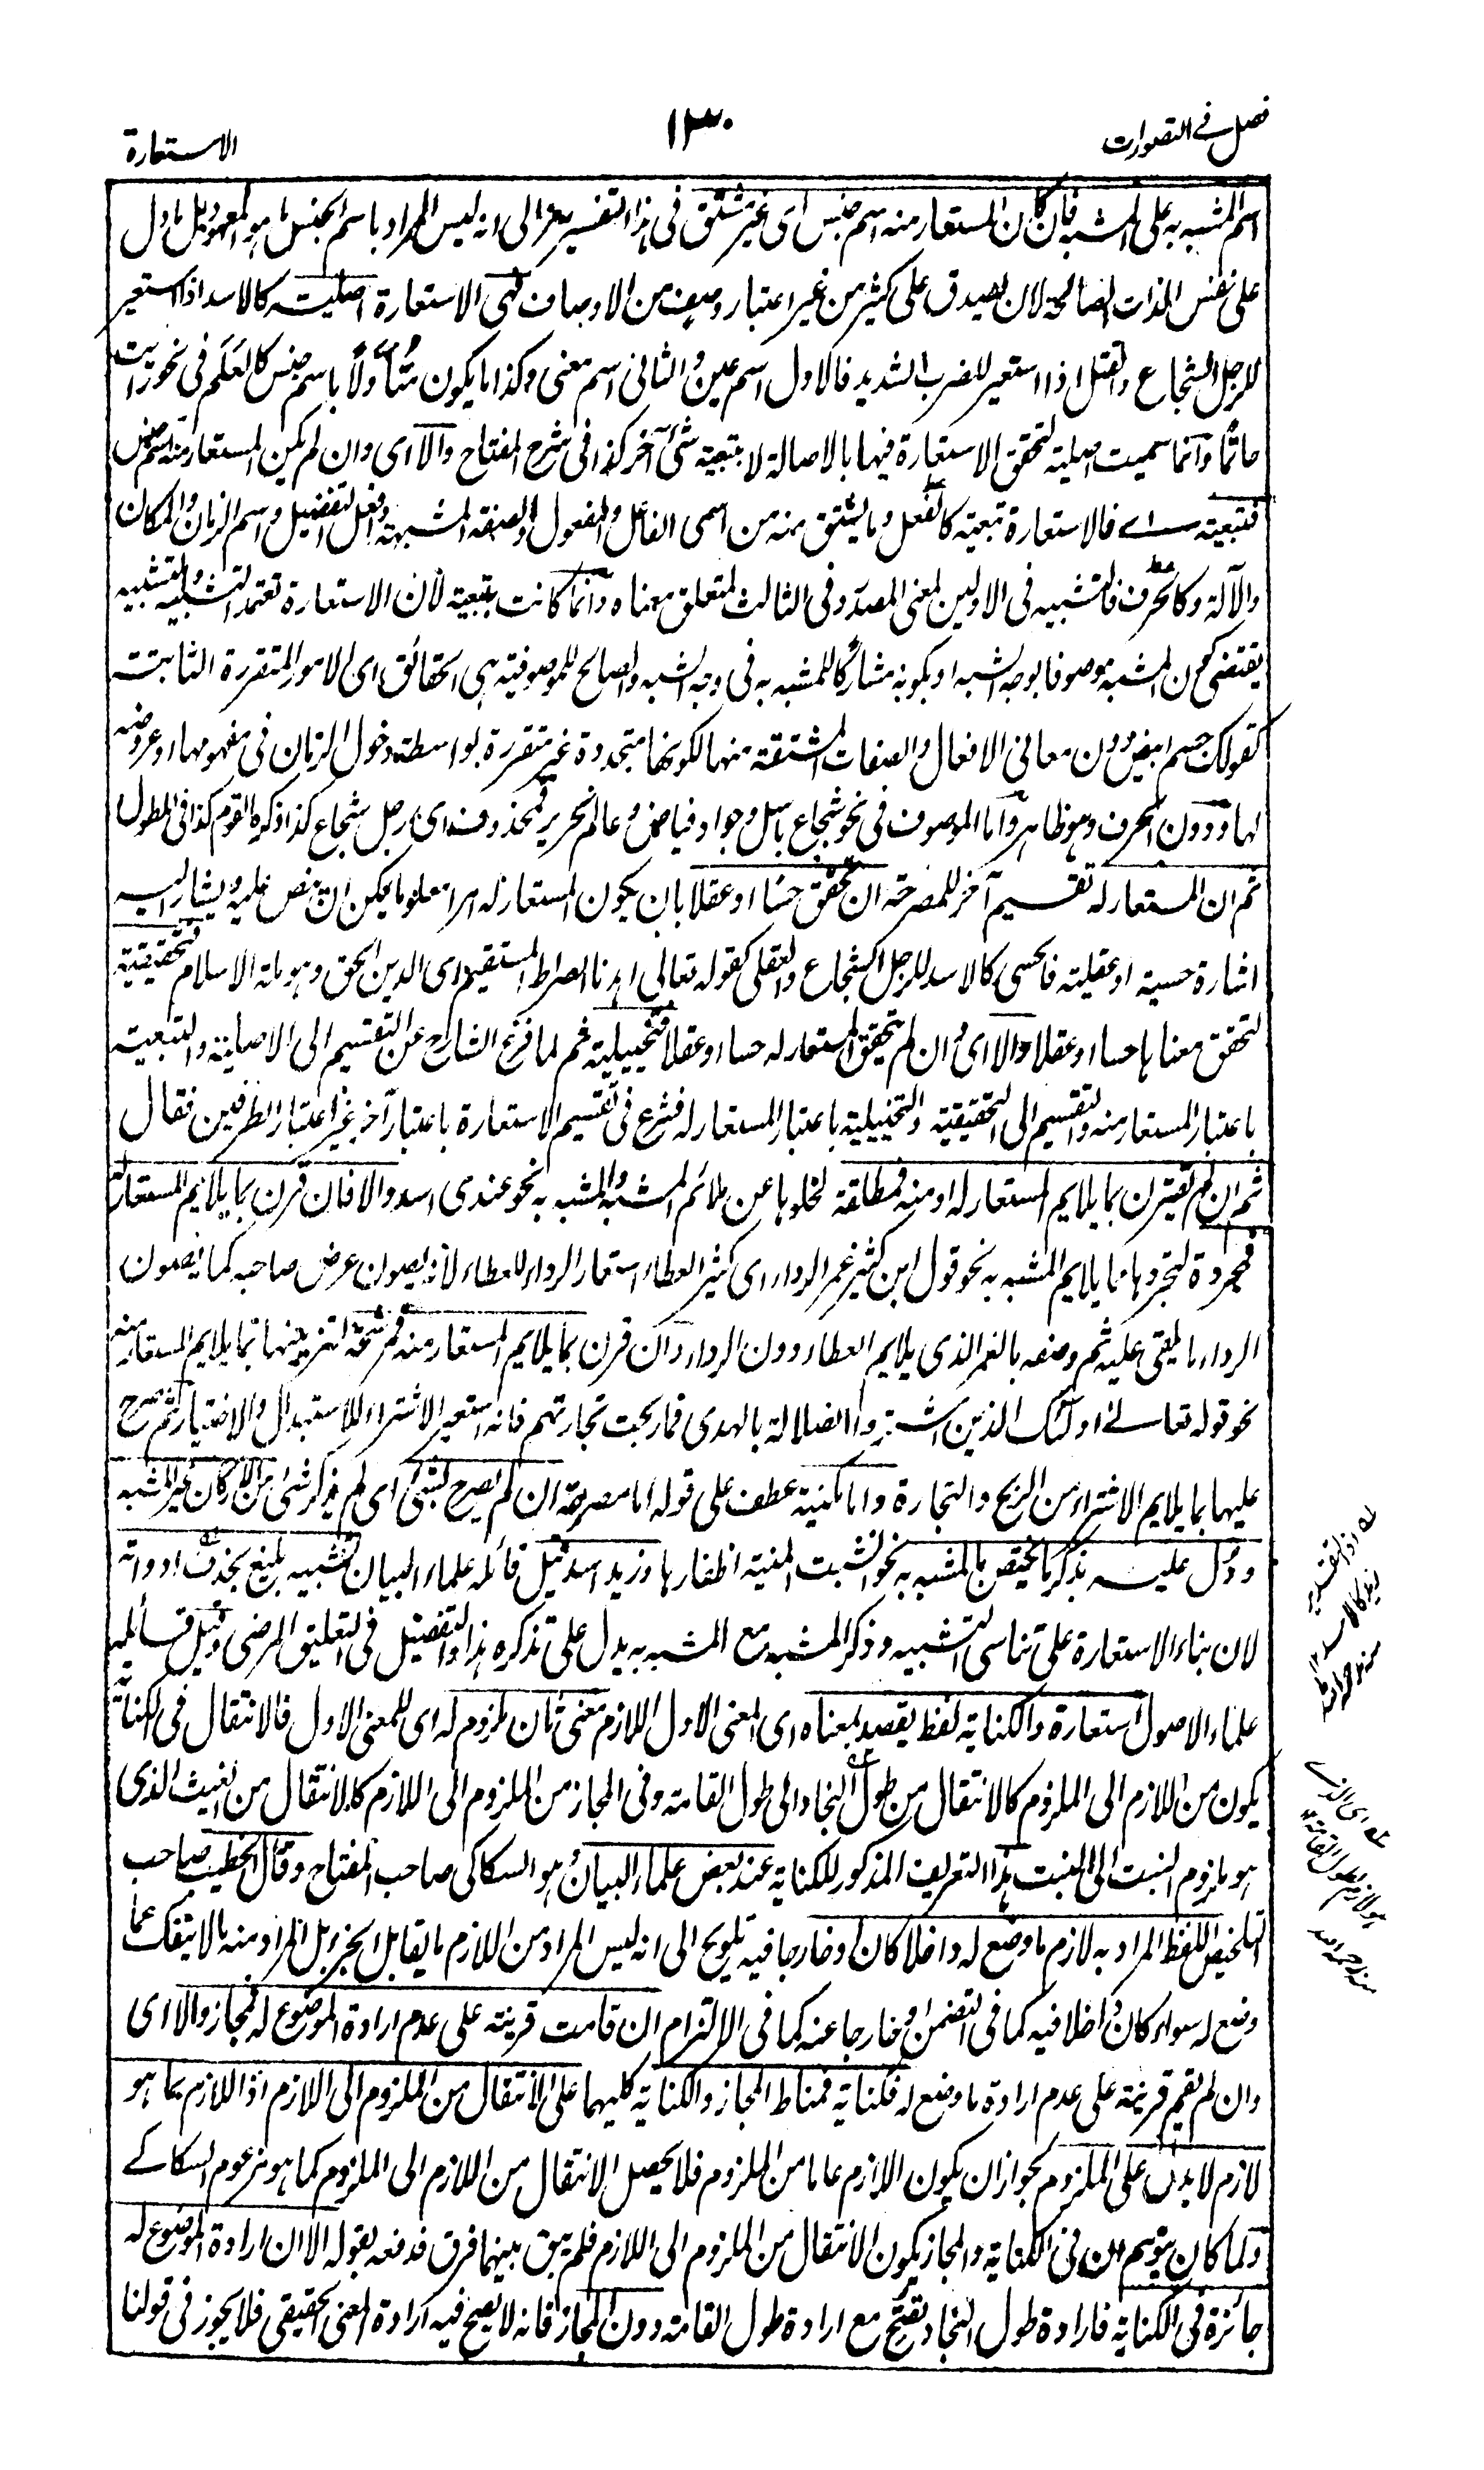 فصل فى التصورات
١٣٠
الاستعارة
اسم المشبه به على المشبه فان كان المستعار منه اسم جنس اى غير مشتق فى هذا التفسير رمز الى انه ليس المراد باسم الجنس ما هو المعهود بل ما دل
على نفس الذات الصالحة لان يصدق على كثير من غير اعتبار وصف من الاوصاف فهى الاستعارة اصلية كالاسد اذا استعير
للرجل الشجاع والقتل اذا استعير للضرب الشديد فالاول اسم عين والثانى اسم معنى وكذا ما يكون متأولا باسم جنس كالعلم فى نحو رايت
حاتما وانما سميت اصلية لتحقق الاستعارة فيها بالاصالة لا بتبعية شئ آخر كذا فى شرح المفتاح والا اى وان لم يكن المستعار منه اسم جنس
فتبعية اے فالاستعارة تبعية كالفعل وما يشتق منه من اسمى الفاعل والمفعول والصفة المشبهة وافعل التفضيل واسم الزمان والمكان
والآلة وكالحرف فالتشبيه فى الاولين لمعنى المصدر وفى الثالث لمتعلق معناه وانما كانت تبعية لان الاستعارة تعتمد التشبيه والتشبيه
يقتضى كون المشبه موصوفا بوجه الشبه او بكونه مشاركا للمشبه به فى وجه الشبه والصالح للموصوفية هى الحقائق اى الامور المتقررة الثابتة
كقولك جسم ابيض دون معانى الافعال والصفات المشتقة منها لكونها متجددة غير متقررة بواسطة دخول الزمان فى مفهومها او عروضه
لها ودون الحرف وهو ظاهر واما الموصوف فى نحو شجاع باسل وجواد فياض وعالم نحرير فمحذوف اى رجل شجاع كذا ذكره القوم كذا فى المطول
ثم ان المستعار له تقسيم آخر للمصرحة ان تحقق حسا او عقلا بان يكون المستعار له امرا معلوما يمكن ان ينص عليه ويشار اليه
اشارة حسية او عقلية فالحسى كالاسد للرجل الشجاع والعقلى كقوله تعالى اهدنا الصراط المستقيم اى الدين الحق وهو ملة الاسلام فتحقيقية
لتحقق معناها حسا او عقلا والا اى وان لم يتحقق المستعار له حسا او عقلا فتخييلية ثم لما فرغ الشارح عن التقسيم الى الاصلية والتبعية
باعتبار المستعار منه والتقسيم الى التحقيقية والتخييلية باعتبار المستعار له فشرع فى تقسيم الاستعارة باعتبار آخر غير اعتبار الطرفين فقال
ثم ان لم تقترن بما يلايم المستعار له او منه فمطلقة لخلوها عن ملائم المشبه والمشبه به نحو عندى اسد والا فان قرن بما يلايم المستعار له
فمجردة لتجردها عما يلايم المشبه به نحو قول ابن كثير غمر الرداء اى كثير العطاء استعار الرداء للعطاء لانه يصون عرض صاحبه كما يصون
الرداء ما يلقى عليه ثم وصفه بالغمر الذى يلايم العطاء دون الرداء وان قرن بما يلايم المستعار منه فمرشحة لتزيينها بما يلايم المستعار منه
نحو قوله تعالے اولئك الذين اشتروا الضلالة بالهدى فما ربحت تجارتهم فانه استعير الاشتراء للاستبدال والاختيار ثم صرح
عليها بما يلايم الاشتراء من الربح والتجارة واما مكنية عطف على قوله اما مصرحة ان لم يصرح بشئ اى لم يذكر شئ من الاركان غير المشبه
ودل عليه بذكر ما يختص بالمشبه به نحو انشبت المنية اظفارها وزيد اسد قيل قائله علماء البيان تشبيه بليغ بحذف ادواته
لان بناء الاستعارة على تناسى التشبيه وذكر المشبه مع المشبه به يدل على تذكره هذا والتفصيل فى التعليق المرضى وقيل قائله
علماء الاصول استعارة والكناية لفظ يقصد بمعناه اى المعنى الاول اللازم معنى ثان ملزوم له اى للمعنى الاول فالانتقال فى الكناية
يكون من اللازم الى الملزوم كالانتقال من طول النجاد الى طول القامة وفى المجاز من الملزوم الى اللازم كالانتقال من الغيث الذى
هو ملزوم النبت الى النبت هذا التعريف المذكور للكناية عند بعض علماء البيان وهو السكاكى صاحب المفتاح وقال الخطيب صاحب
التلخيص اللفظ المراد به لازم ما وضع له داخلا كان او خارجا فيه تلويح الى انه ليس المراد من اللازم ما يقابل الجزء بل المراد منه ما لا ينفك عما
وضع له سواء كان داخلا فيه كما فى التضمن او خارجا عنه كما فى الالتزام ان قامت قرينة على عدم ارادة الموضوع له فمجاز والا اى
وان لم تقم قرينة على عدم ارادة ما وضع له فكناية فمناط المجاز والكناية كليهما على الانتقال من الملزوم الى اللازم اذ اللازم بما هو
لازم لا يدل على الملزوم لجواز ان يكون اللازم عاما من الملزوم فلا يحصل الانتقال من اللازم الى الملزوم كما هو مزعوم السكاكے
ولما كان يتوهم ان فى الكناية والمجاز يكون الانتقال من الملزوم الى اللازم فلم يبق بينهما فرق فدفعه بقوله الا ان ارادة الموضوع له
جائزة فى الكناية فارادة طول النجاد يصح مع ارادة طول القامة دون المجاز فانه لا يصح فيه ارادة المعنى الحقيقى فلا يجوز فى قولنا
له اذ التقدير
زيد كالاسد ١٢
منه رحمه الله
له اى الذى
هو لازم لطول القامة ١٢
منه رحمه الله